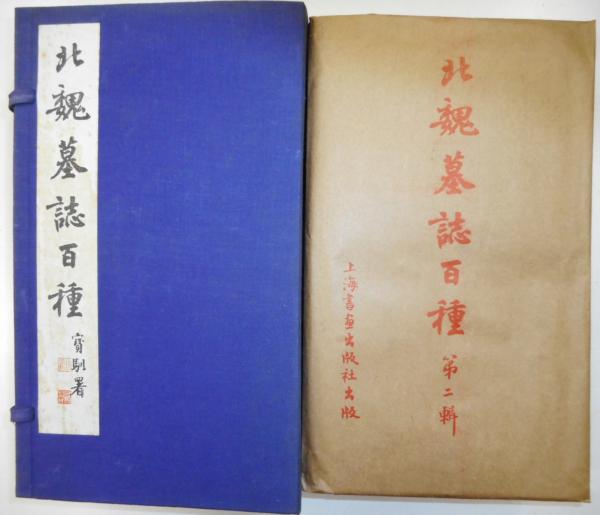 北魏墓誌百種
寳馴署
北魏墓誌百種
第二輯
上海書畫出版社出版